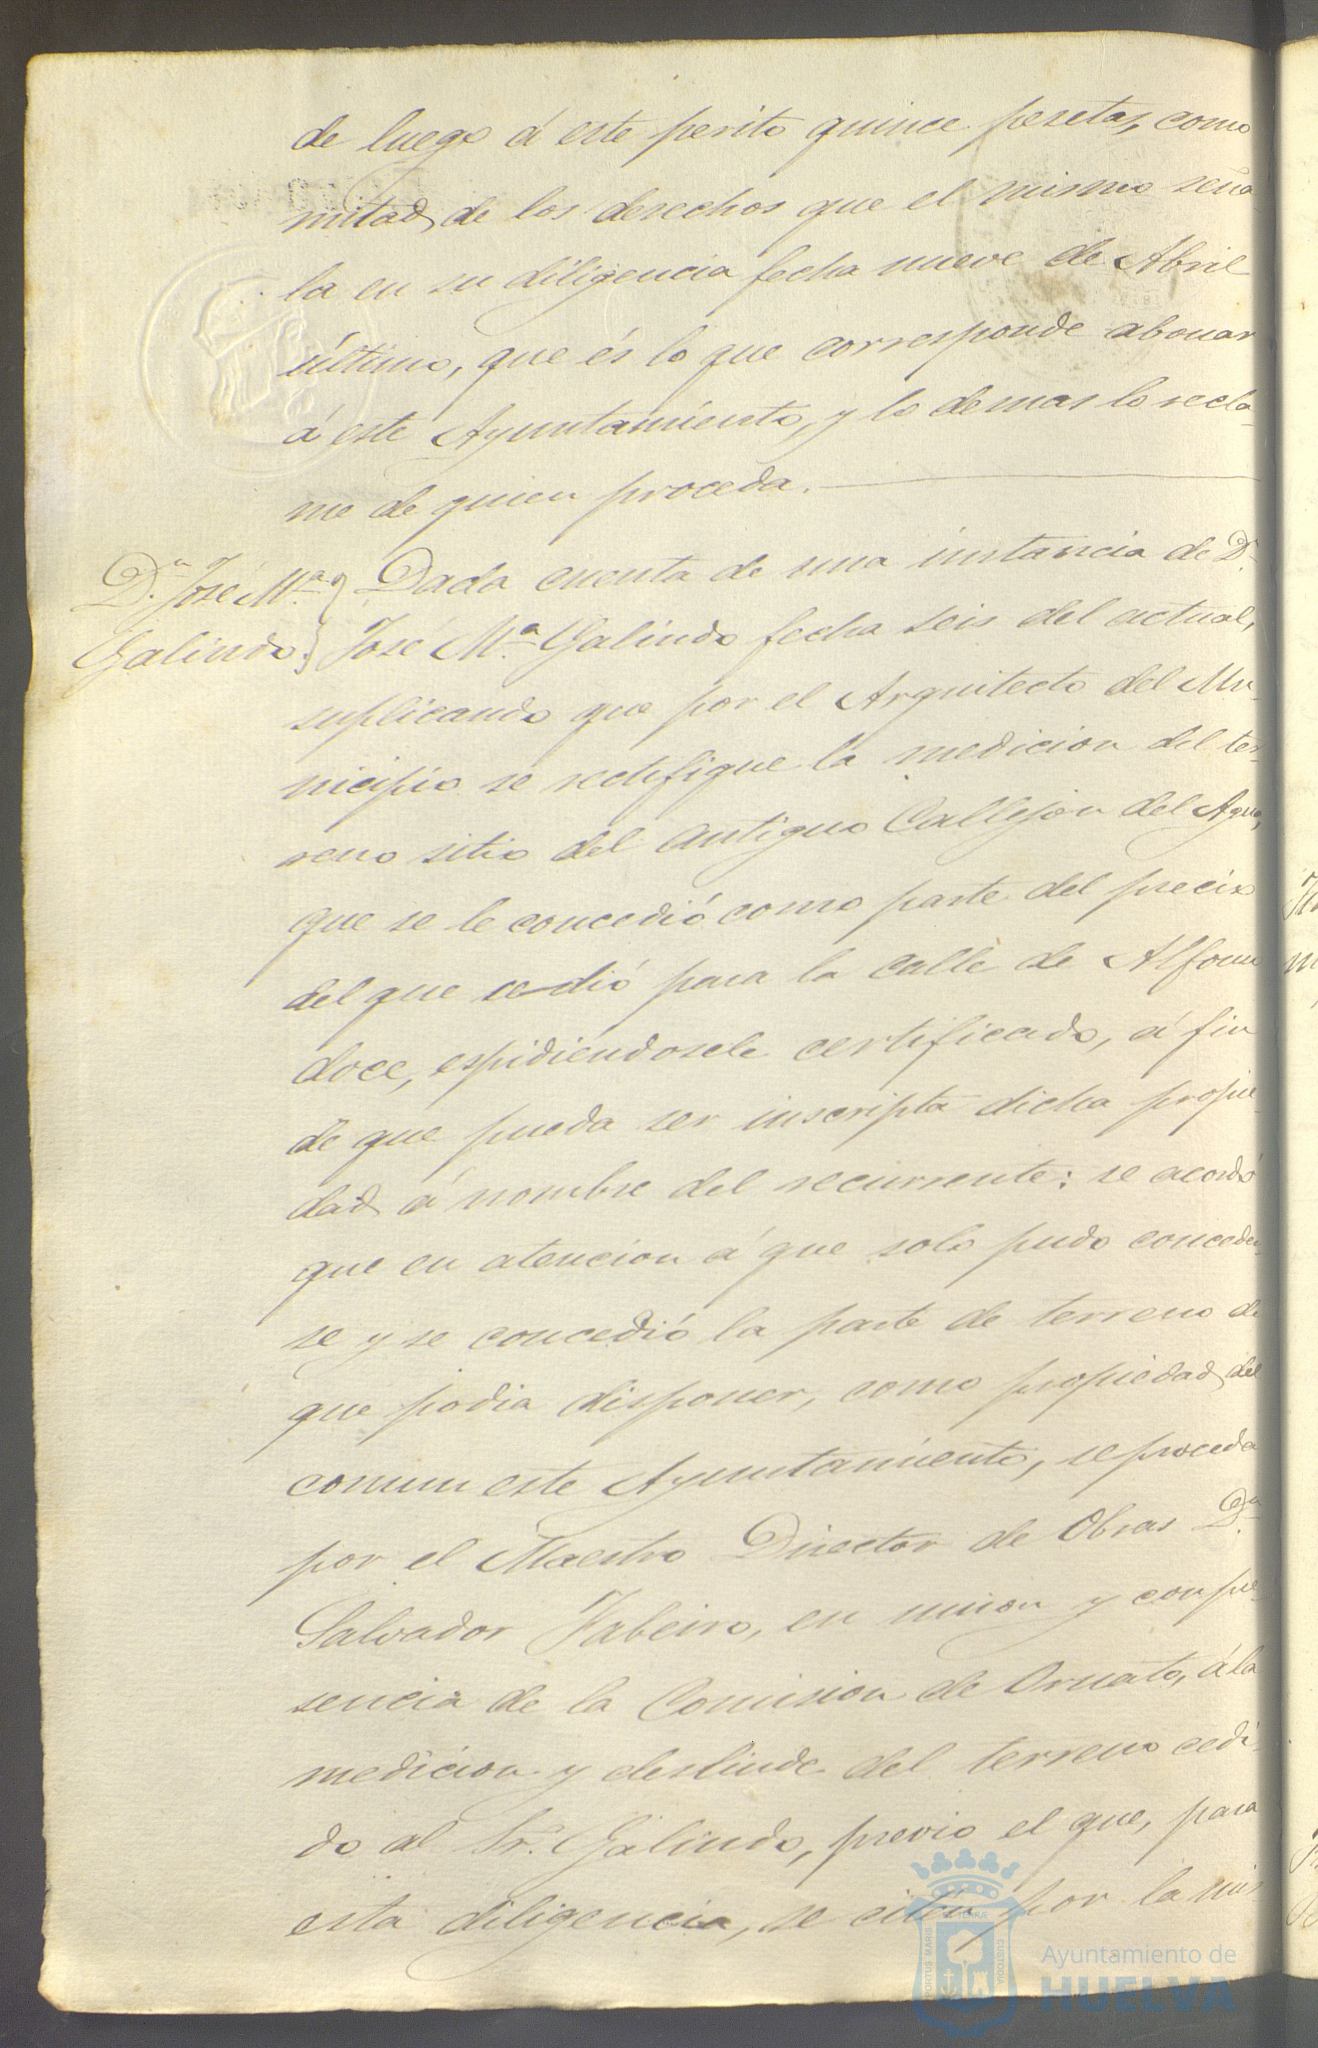 de luego á este perito quince pesetas, como
mitad de los derechos que el mismo seña
la en su diligencia fecha nueve de Abril
último, que és lo que corresponde abonar
á este Ayuntamiento, y lo demas lo recla-
me de quien proceda.
D.n José M.a
Galindo.
Dada cuenta de una instancia de D.n
José M.a Galindo fecha seis del actual,
suplicando que por el Arquitecto del Mu-
nicipio se rectifique la medicion del ter-
reno sitio del antiguo Callejon del Agua,
que se le concedió como parte del precio
del que cedió para la calle de Alfonso
doce, espidiendosele certificado, á fin
de que pueda ser inscripta dicha propie-
dad á nombre del recurrente: se acordó
que en atencion á que solo pudo conceder-
se y se concedió la parte de terreno de
que podia disponer, como propiedad del
comun este Ayuntamiento, se proceda
por el Maestro Director de Obras D.n
Salvador Fabeiro, en union y con pre-
sencia de la Comision de Ornato, á la
medicion y deslinde del terreno cedi-
do al Sr. Galindo, previo el que, para
esta diligencia, se citen por la mis
PORTUS MARIS
ET TERRAE
CUSTODIA
Ayuntamiento de
HUELVA